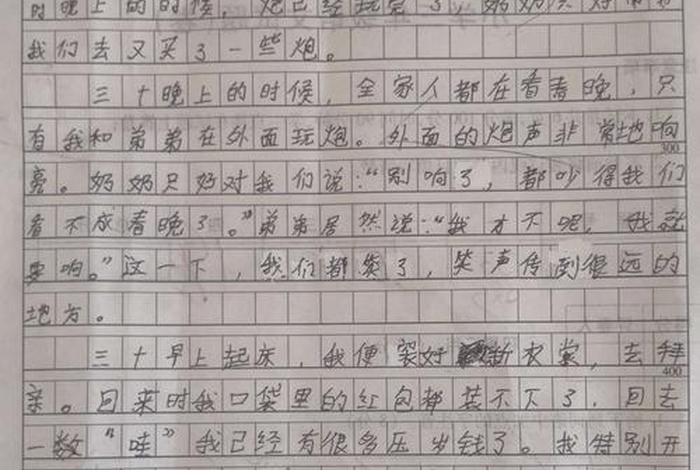 时晚上的时候，炮已经玩完了，奶奶只好带
我们去又买了一些炮。
三十晚上的时候，全家人都在看春晚，只
有我和弟弟在外面玩炮。外面的炮声非常地响
300
亮。奶奶只好对我们说：“别响了，都吵得我们
看不成春晚了。”弟弟居然说：“我才不呢，我就
要响。”这一下，我们都笑了，笑声传到很远的
地方。
三十早上起床，我便装好新衣裳，去拜
400
亲。回来时我口袋里的红包都装不下了，回去
一数“哇”我已经有很多压岁钱了。我特别开